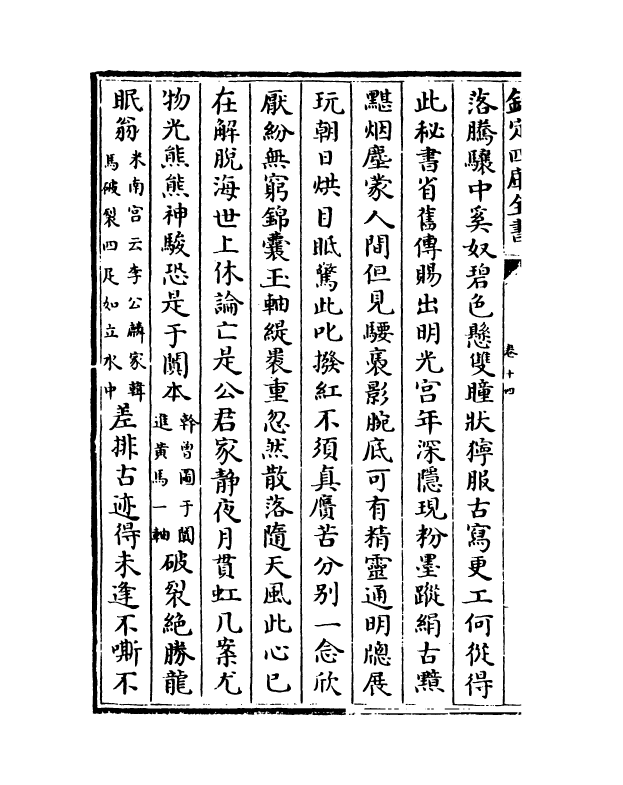 欽定四庫全書
卷十四
落騰驤中奚奴碧色懸雙瞳狀獰服古寫更工何從得
此秘書省舊傳賜出明光宫年深隱現粉墨蹤絹古黯
黮烟塵蒙人間但見騕褭影腕底可有精靈通明牕展
玩朝日烘目眂驚此叱撥紅不須真贋苦分别一念欣
厭紛無窮錦囊玉軸緹裘重忽然散落隨天風此心已
在解脱海世上休論亡是公君家静夜月貫虹几案尤
物光熊熊神駿恐是于闐本幹曽圖于闐進黄馬一軸破裂絶勝龍
眠翁米南宫云李公麟家韓馬破裂四足如立水中差排古迹得未逢不嘶不